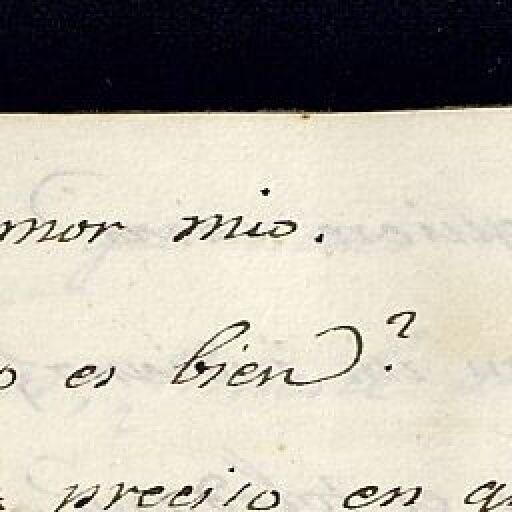 mor mio.
o es bien?
preciso en q